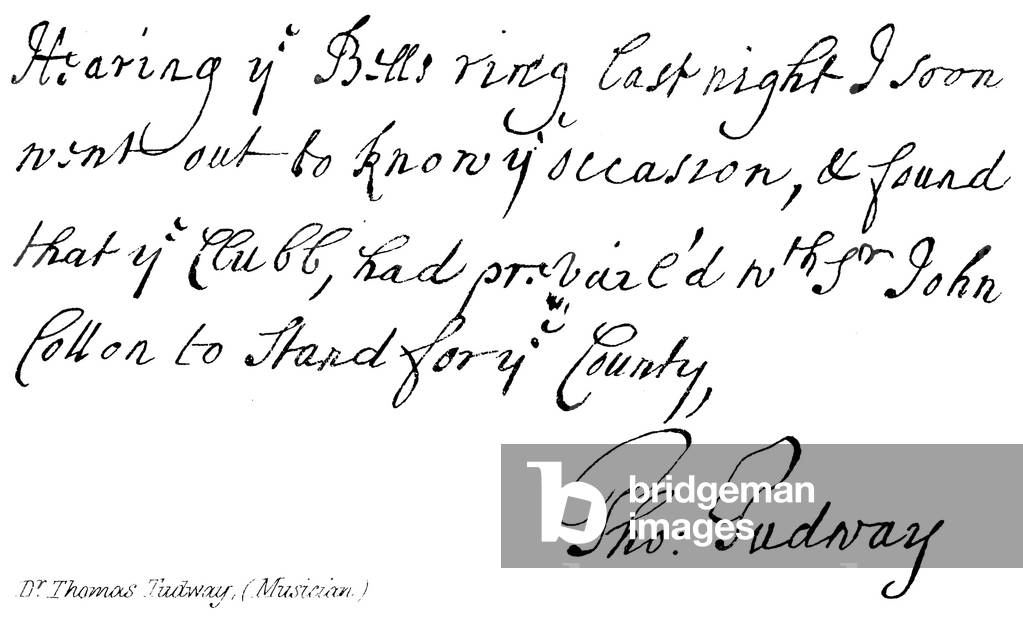 Hearing yᵉ Bells ring last night I soon
went out to know yᵉ occasion, & found
that yᵉ Clubb, had prevail'd wᵗʰ Sʳ John
Cotton to stand for yᵉ County,
Tho: Tudway
bridgeman
images
Dʳ. Thomas Tudway, (Musician)